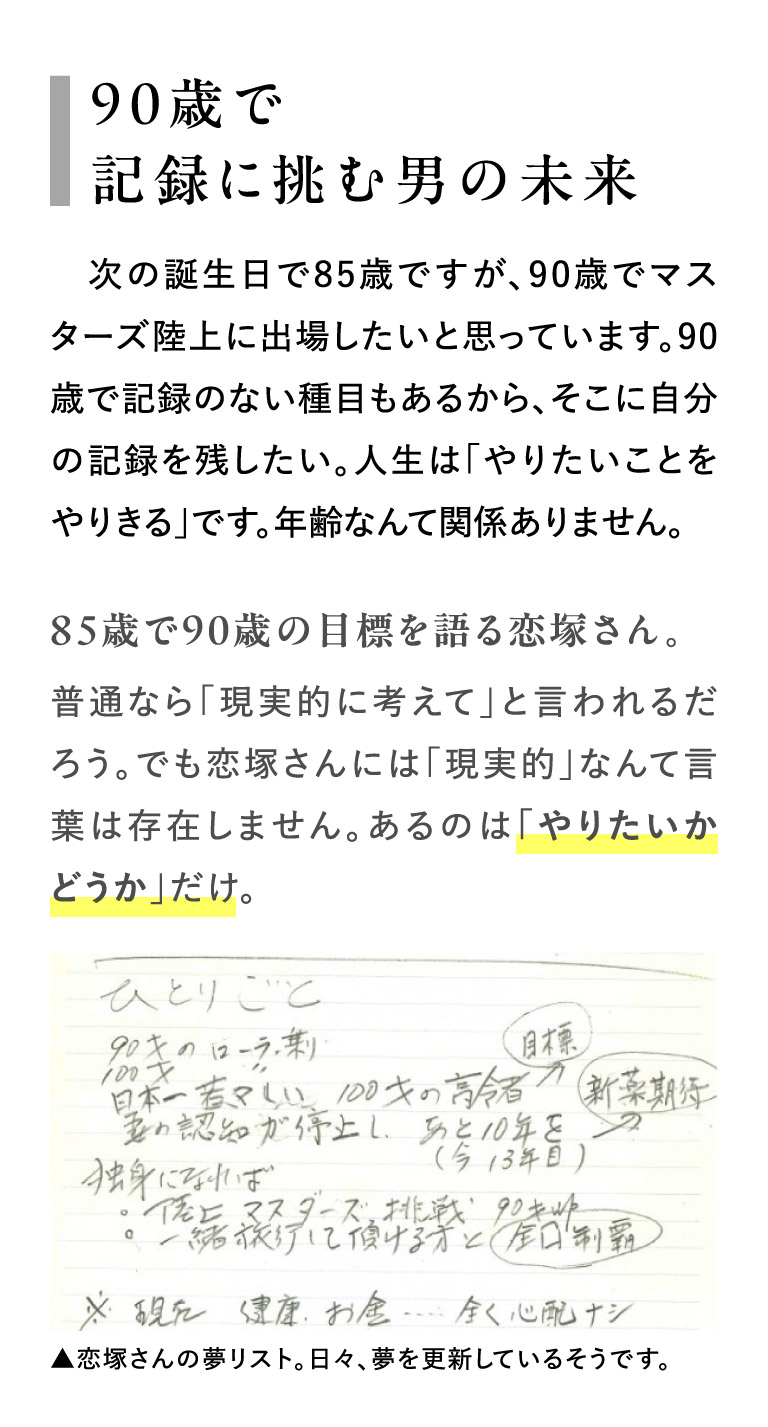 90歳で
記録に挑む男の未来
次の誕生日で85歳ですが、90歳でマス
ターズ陸上に出場したいと思っています。90
歳で記録のない種目もあるから、そこに自分
の記録を残したい。人生は「やりたいことを
やりきる」です。年齢なんて関係ありません。
85歳で90歳の目標を語る恋塚さん。
普通なら「現実的に考えて」と言われるだ
ろう。でも恋塚さんには「現実的」なんて言
葉は存在しません。あるのは「やりたいか
どうか」だけ。
ひとりごと
90才のローラー乗り 目標
100才 〃
日本一若々しい 100才の高令者 新薬期待
妻の認知が停止し、あと10年を
(今13年目)
独身になれば
。陸上マスターズ 挑戦 90才
。一緒旅行して頂ける方と 全日制覇
※ 現在 健康、お金…… 全く心配ナシ
▲恋塚さんの夢リスト。日々、夢を更新しているそうです。